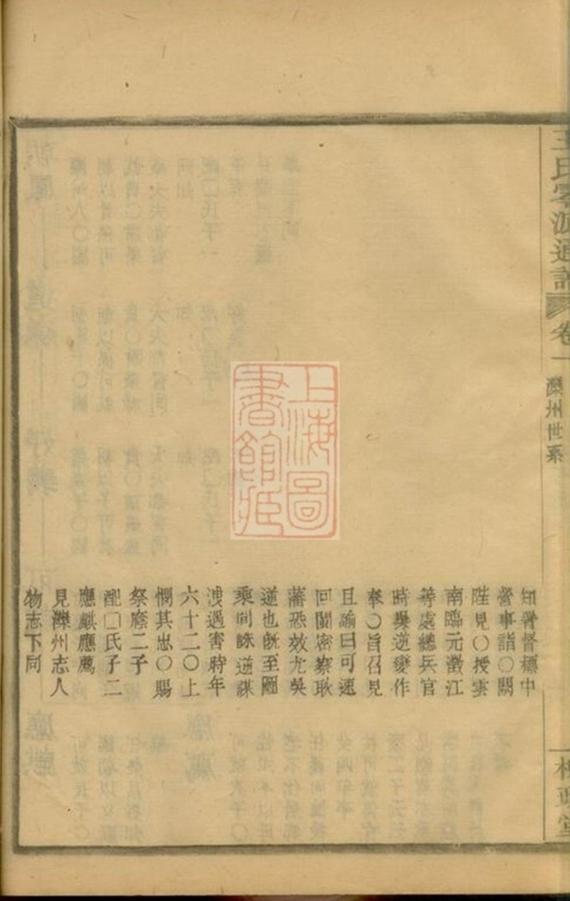 王氏零派通譜
卷一
灤州世系
知署督標中
營事詣○闕
陛見○授雲
南臨元澂江
等處總兵官
時吳逆變作
奉○旨召見
且諭曰可速
回閩密察耿
藩恐效尤吳
逆也旣至
乘間詠逆謀
洩遇害時年
六十二○上
憫其忠○賜
祭廕二子
配□氏子二
應麒應薦
見灤州志人
物志下同
上海圖
書館藏